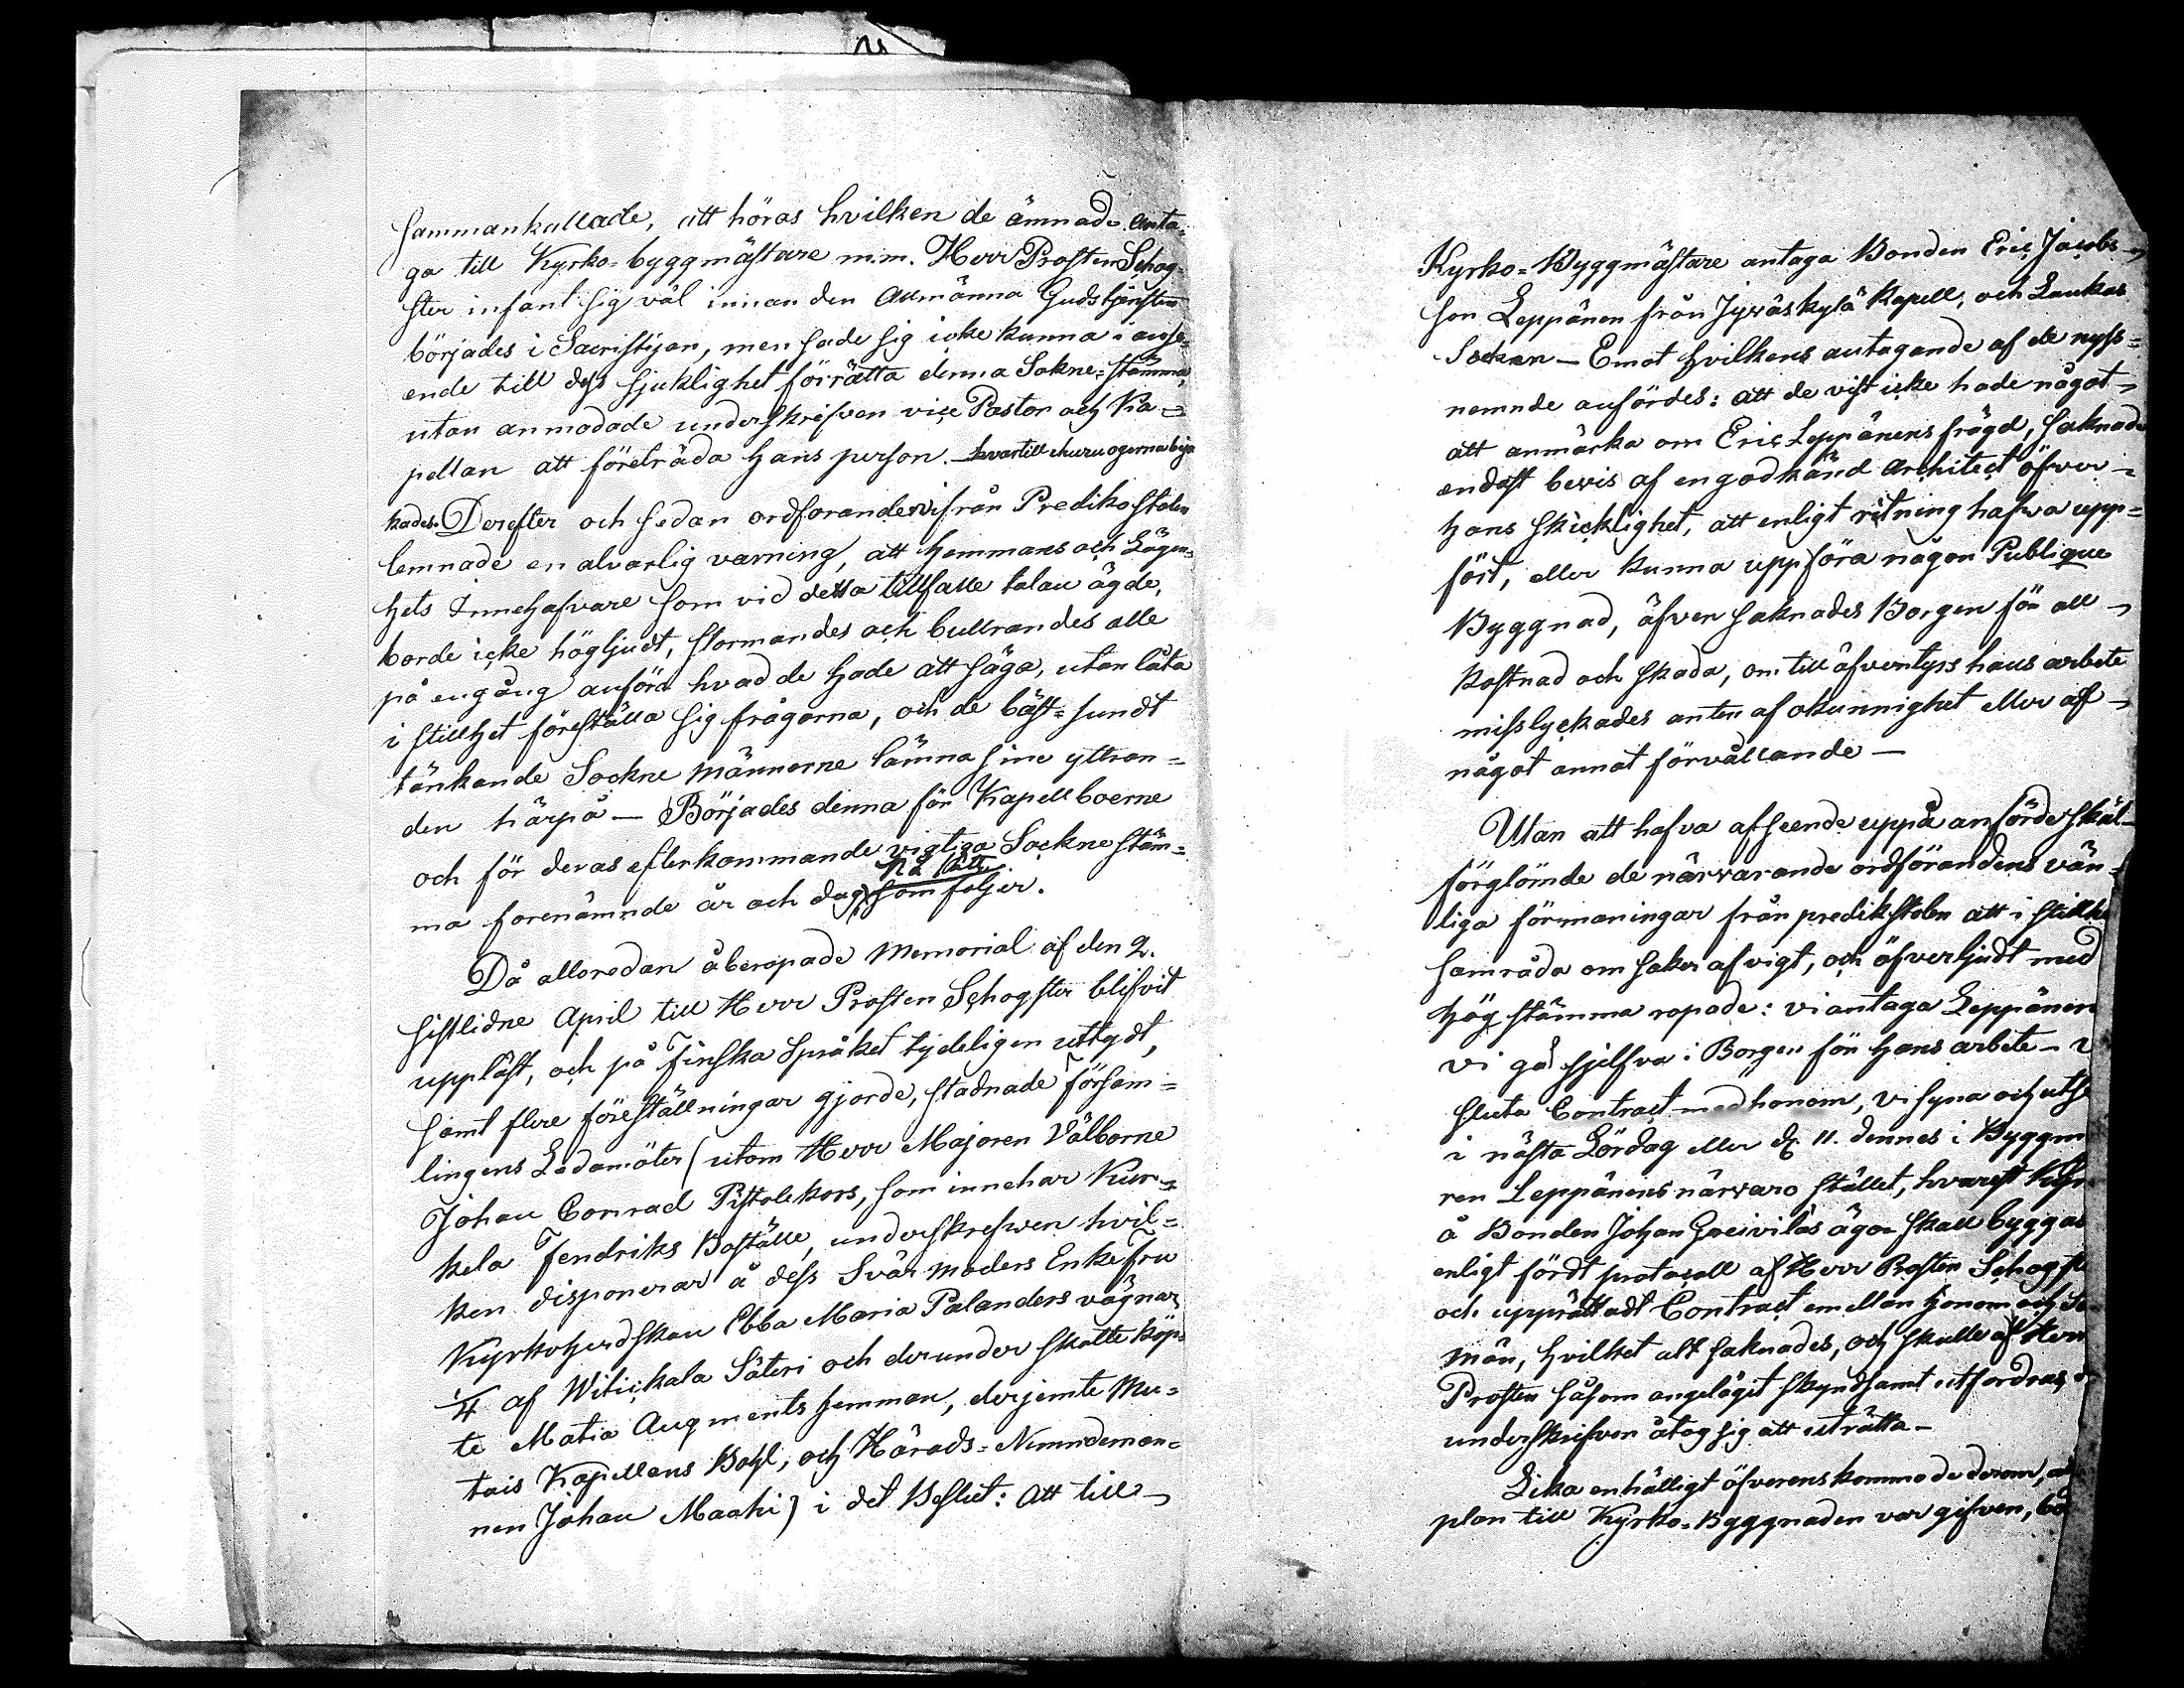 sammankallade, att höras hvilken de ämnade anta-
ga till Kyrko-byggmästare m.m. Herr Prosten Schog-
ster infant sig väl innan den Allmänna Gudstjensten
börjades i Sacristijan, men sade sig icke kunna i anse-
ende till dess sjuklighet förrätta denna Sokne-stämma,
utan anmodade underskrifven vice Pastor och Ka-
pellan att företräda hans person. hvartill ehuru ogerna beja
kades. Derefter och sedan ordforanden ifrån Predikostolen
lemnade en alvarlig varning, att Hemmans och Lägen-
hets Innehafvare som vid detta tillfälle talan ägde,
borde icke högljudt, stormandes och bullrandes alle
på engång anföra hvad de hade att säga, utan låta
i stillhet föreställa sig frågorna, och de bäst-sundt
tänkande Sockne männerne lämna sine yttran-
den härpå — Börjades denna för Kapellboerne
och för deras efterkommande vigtiga Sockne stäm-
på sätt
ma forenämnde år och dag, som foljer.
Då alleredan åberopade Memorial af den 2.
sistlidne April till Herr Prosten Schogster blifvit
uppläst, och på Finska Språket tydeligen uttydt,
samt flere föreställningar gjorde, stadnade Försam-
lingens Ledamöter (utom Herr Majoren Välborne
Johan Conrad Pistolekors, som innehar Kur-
kela Fendriks Boställe, underskrefwen hvil-
ken disponerar å dess Svär moders Enkefru
Kyrkoherdskan Ebba Maria Palanders vägnar
1/4 af Witickala Säteri och derunder skatteköp-
te Matia Augments hemman, derjemte Mu-
tais Kapellans Bohl, och Härads-Nemndeman-
nen Johan Maahi) i det Beslut: Att till
Kyrko-Byggmästare antaga Bonden Eric Jacobs-
son Leppänen från Jywäskylä Kapell, och Laukas
Socken — Emot hvilkens antagande af de nyss-
nemnde anfördes: att de vist icke hade något
att anmärka om Eric Leppänens frägd, saknade
endast bevis af en godkänd Architect öfver
hans skicklighet, att enligt ritning hafva upp-
fört, eller kunna uppföra någon Publique
Byggnad, äfven saknades Borgen för all
kostnad och skada, om till äfventyrs hans arbete
misslyckades anten af okunnighet eller af
något annat förvållande —
Utan att hafva afseende uppå anförde skäl
förglömde de närvarande ordförandens vän-
liga förmaningar från predikstolen att i stillhe
samråda om saker af vigt, och öfverljudt med
hög stämma ropade: vi antaga Leppänen
vi gå sjelfva i Borgen för hans arbete — v
sluta Contract med honom, vi syna och utse
i nästa Lördag eller d. 11. dennes i Byggm
ren Leppänens närvaro stället, hvarest Kyr
å Bonden Johan Greiviläs ägor skall byggas
enligt fördt protocoll af Herr Prosten Schogst
och upprättadt Contract emellan honom och So
män, hvilket alt saknades, och skulle af Herr
Prosten såsom angeläget skyndsamt utfordras,
underskrifven åtog sig att uträtta —
Lika enhälligt öfverenskommo de derom, at
plan till Kyrko-Byggnaden var gifven, bö